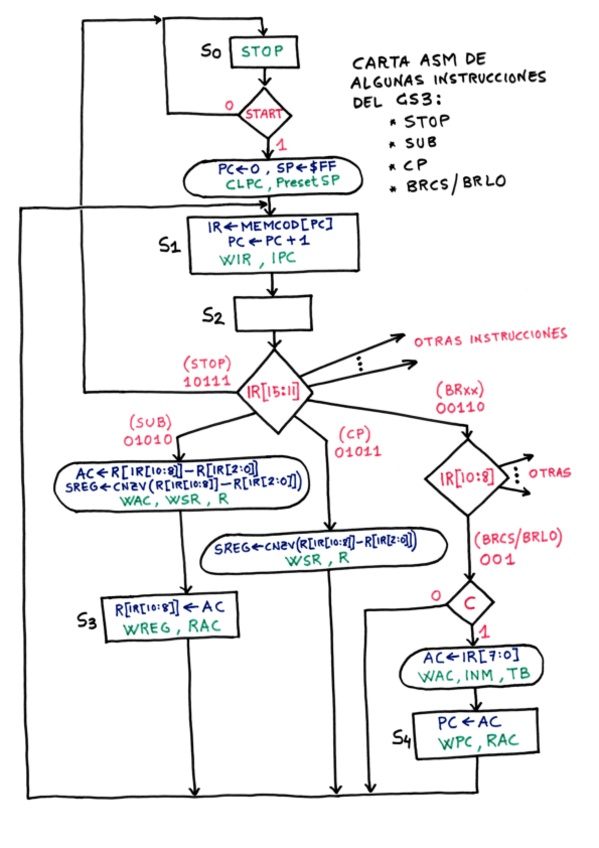 S0 STOP
CARTA ASM DE
ALGUNAS INSTRUCCIONES
DEL CS3:
* STOP
* SUB
* CP
* BRCS/BRLO
0 START
1
PC←0, SP←$FF
CLPC, Preset SP
S1 IR←MEMCOD[PC]
PC←PC+1
WIR, IPC
S2
OTRAS INSTRUCCIONES
(STOP)
10111
IR[15:11]
(BRxx)
00110
(SUB)
01010
(CP)
01011
IR[10:8] OTRAS
AC←R[IR[10:8]]-R[IR[2:0]]
SREG←CNZV(R[IR[10:8]]-R[IR[2:0]])
WAC, WSR, R
SREG←CNZV(R[IR[10:8]]-R[IR[2:0]])
WSR, R
(BRCS/BRLO)
001
S3 R[IR[10:8]]←AC
WREG, RAC
0 C
1
AC←IR[7:0]
WAC, INM, TB
S4 PC←AC
WPC, RAC